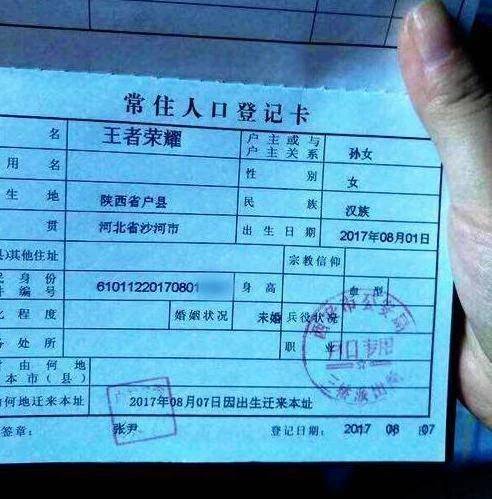 常住人口登记卡
名 王者荣耀 户主或与户主关系 孙女
用名 性别 女
生地 陕西省户县 民族 汉族
贯 河北省沙河市 出生日期 2017年08月01日
县)其他住址 宗教信仰
民身份件编号 61011220170801 身高 血型
化程度 婚姻状况 未婚 兵役状况
务处所 职业
由何地本市(县)
何地迁来本址 2017年08月07日因出生迁来本址
签章： 张尹 登记日期： 2017 08 07
西安市公安局
户口专用
三桥派出所